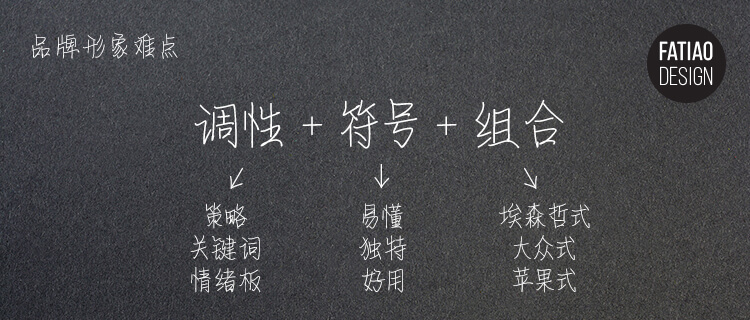 品牌形象难点
FATIAO
DESIGN
调性 + 符号 + 组合
策略 易懂 埃森哲式
关键词 独特 大众式
情绪板 好用 苹果式